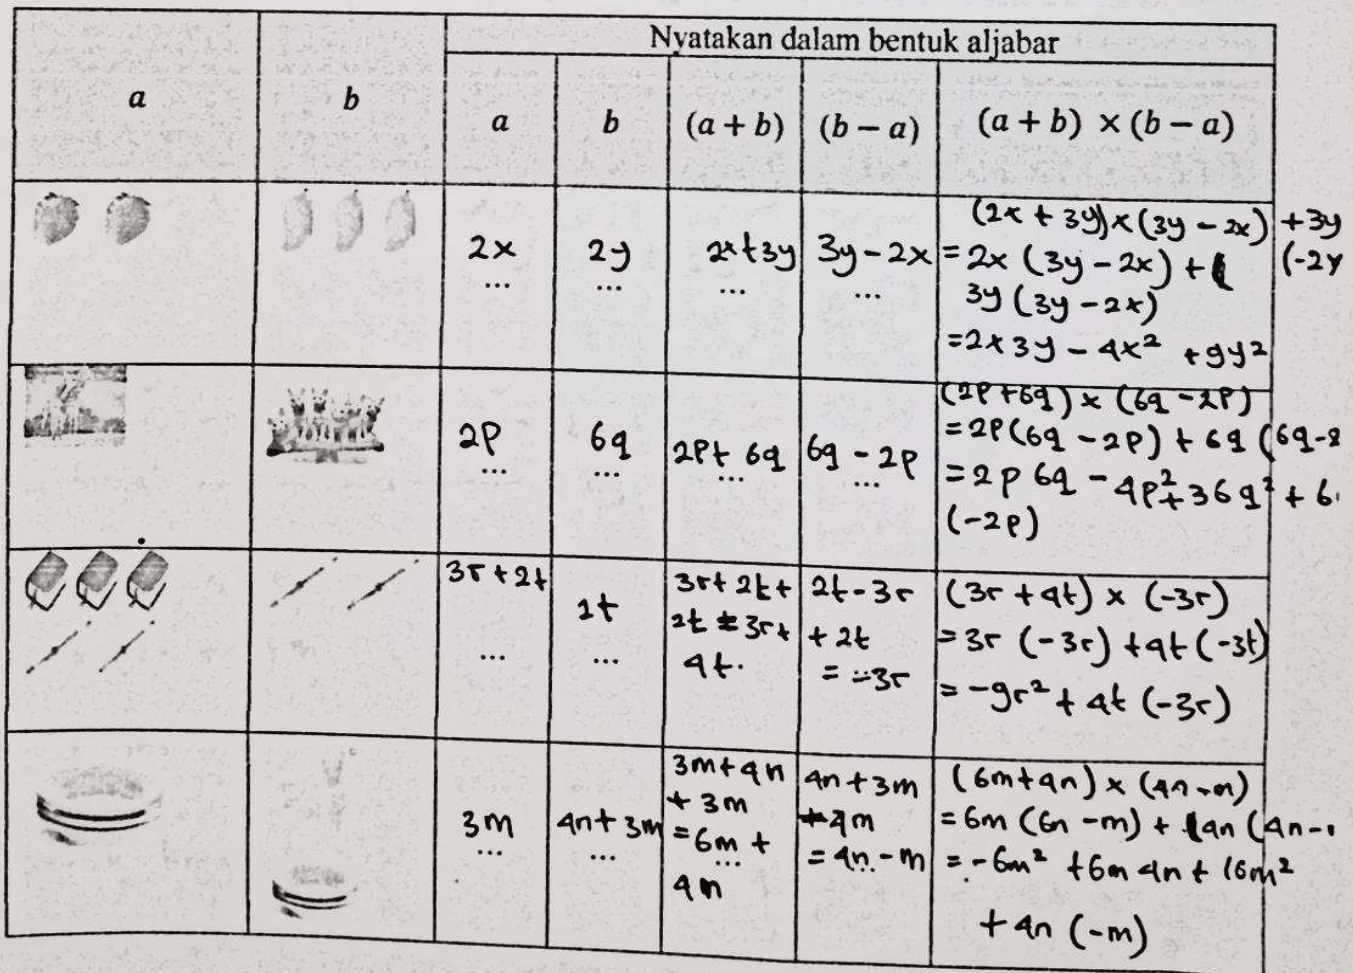 Nyatakan dalam bentuk aljabar
a b a b (a + b) (b − a) (a + b) × (b − a)
2x
...
2y
...
2x+3y
...
3y − 2x
...
(2x + 3y) × (3y − 2x) + 3y
= 2x (3y − 2x) + (-2y
3y (3y − 2x)
= 2x 3y − 4x² + 9y²
2p
...
6q
...
2p+ 6q
...
6q − 2p
...
(2p +6q) × (6q − 2p)
= 2p(6q − 2p) + 6q (6q-2
= 2p 6q − 4p² + 36q² + 6
(−2p)
3r + 2t
...
2t
...
3r+ 2t +
2t = 3r +
4t.
2t − 3r
+ 2t
= -3r
(3r + 4t) × (−3r)
= 3r (−3r) + 4t (−3t)
= −9r² + 4t (−3r)
3m
...
4n + 3m
...
3m+4n
+ 3m
= 6m +
...
4n
4n + 3m
4m
= 4n − m
(6m+4n) × (4n − m)
= 6m (6n − m) + 4n (4n −
= − 6m² + 6m 4n + 16m²
+ 4n (−m)